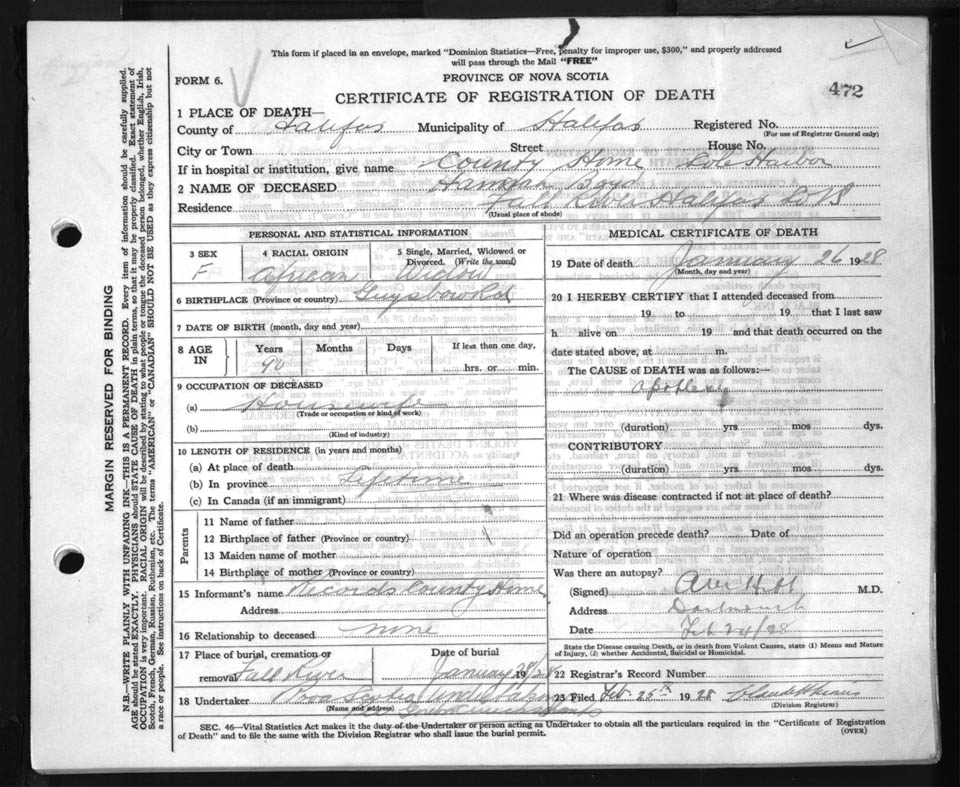 This form if placed in an envelope, marked "Dominion Statistics—Free, penalty for improper use, $300," and properly addressed
will pass through the Mail "FREE"
FORM 6.
PROVINCE OF NOVA SCOTIA
CERTIFICATE OF REGISTRATION OF DEATH
472
1 PLACE OF DEATH—
County of Halifax Municipality of Halifax Registered No.
(For use of Registrar General only)
City or Town Street House No.
If in hospital or institution, give name County Home Cole Harbor
2 NAME OF DECEASED Hannah Boyd
Residence Fall River Halifax
(Usual place of abode)
PERSONAL AND STATISTICAL INFORMATION
3 SEX F
4 RACIAL ORIGIN African
5 Single, Married, Widowed or Divorced. (Write the word) Widow
6 BIRTHPLACE (Province or country) Guysboro
7 DATE OF BIRTH (month, day and year)
8 AGE IN Years 90 Months Days If less than one day, hrs. or min.
9 OCCUPATION OF DECEASED
(a) Housewife
(Trade or occupation or kind of work)
(b)
(Kind of industry)
10 LENGTH OF RESIDENCE (in years and months)
(a) At place of death
(b) In province Lifetime
(c) In Canada (if an immigrant)
Parents
11 Name of father
12 Birthplace of father (Province or country)
13 Maiden name of mother
14 Birthplace of mother (Province or country)
15 Informant's name Records County Home
Address
16 Relationship to deceased none
17 Place of burial, cremation or removal Fall River
Date of burial January 28/ 19 28
18 Undertaker Nova Scotia Undertaking
(Name and address)
MEDICAL CERTIFICATE OF DEATH
19 Date of death January 26 1928
(Month, day and year)
20 I HEREBY CERTIFY that I attended deceased from
19 to 19 that I last saw
h alive on 19 and that death occurred on the
date stated above, at m.
The CAUSE of DEATH was as follows:—
apoplexy
(duration) yrs. mos. dys.
CONTRIBUTORY
(duration) yrs. mos. dys.
21 Where was disease contracted if not at place of death?
Did an operation precede death? Date of
Nature of operation
Was there an autopsy?
(Signed) M.D.
Address Dartmouth
Date Feb 24/28
State the Disease causing Death, or in death from Violent Causes, state (1) Means and Nature
of Injury, (2) whether Accidental, Suicidal or Homicidal.
22 Registrar's Record Number
23 Filed Feb. 25th 1928
(Division Registrar)
SEC. 46—Vital Statistics Act makes it the duty of the Undertaker or person acting as Undertaker to obtain all the particulars required in the "Certificate of Registration
of Death" and to file the same with the Division Registrar who shall issue the burial permit.
(OVER)
MARGIN RESERVED FOR BINDING
N.B.—WRITE PLAINLY WITH UNFADING INK—THIS IS A PERMANENT RECORD. Every item of information should be carefully supplied.
AGE should be stated EXACTLY. PHYSICIANS should STATE CAUSE OF DEATH in plain terms, so that it may be properly classified. Exact statement of
OCCUPATION is very important. RACIAL ORIGIN will be described by stating to what people or tongue the deceased person belonged, whether English, Irish,
Scotch, French, German, Russian, Ruthenian, etc. The terms "AMERICAN" or "CANADIAN" SHOULD NOT BE USED as they express citizenship but not
a race or people. See instructions on back of Certificate.